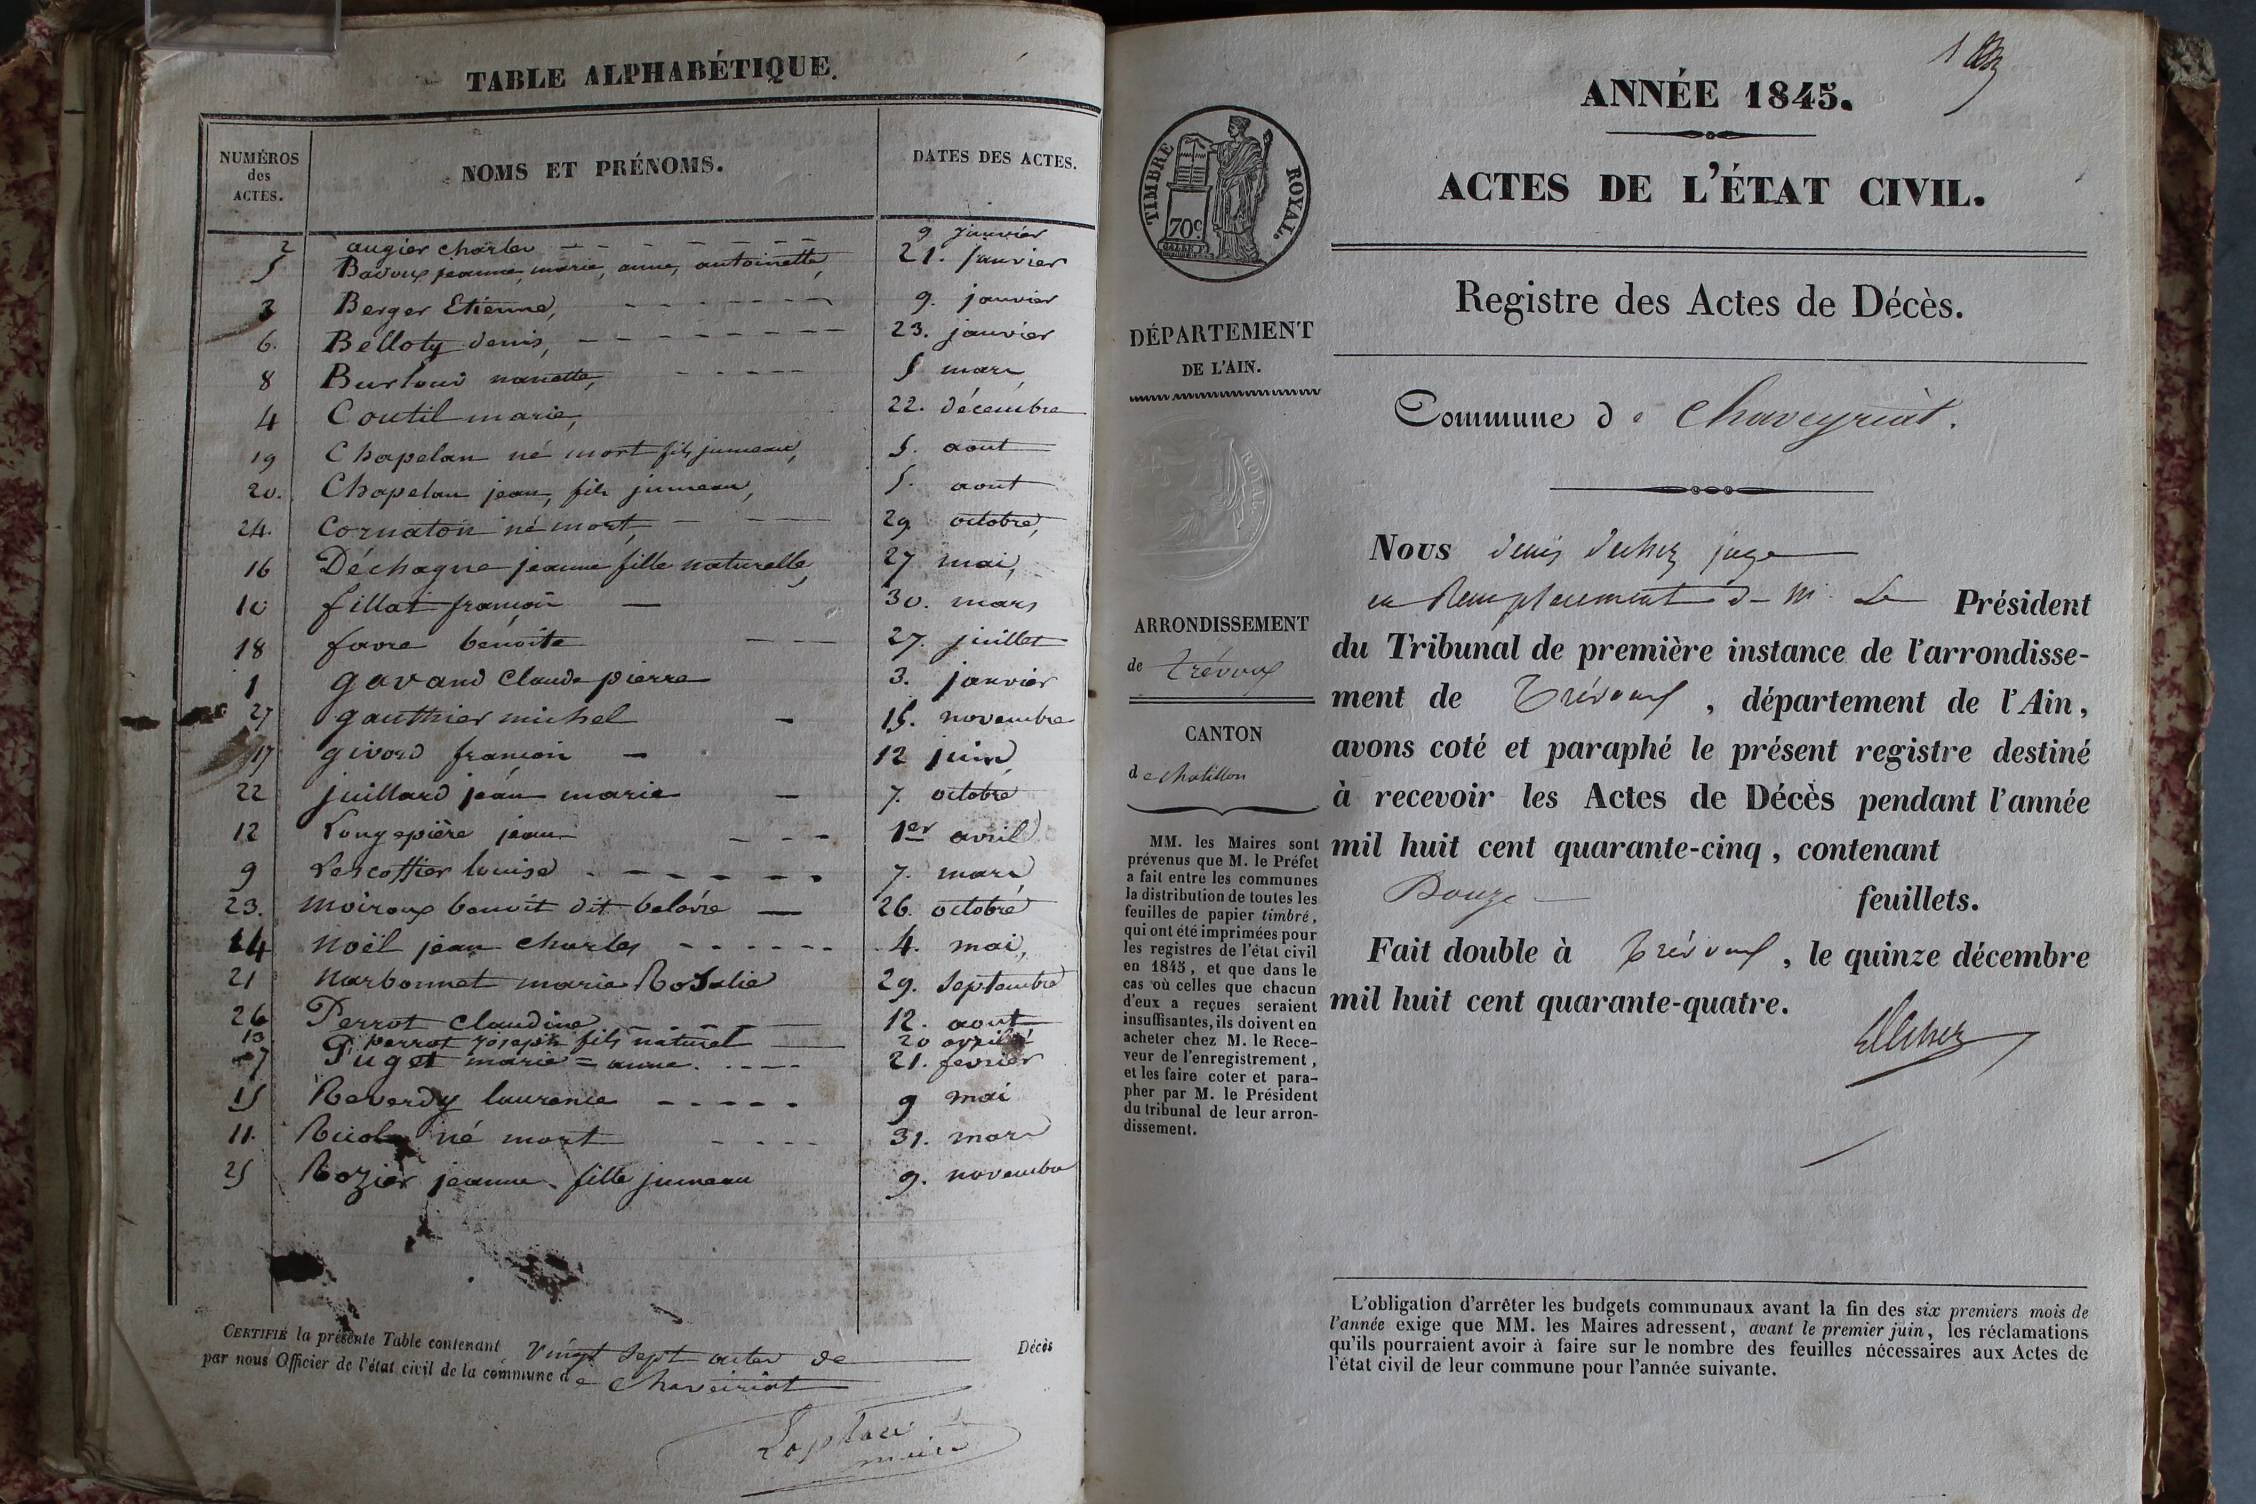 TABLE ALPHABÉTIQUE.
NUMÉROS des ACTES.
NOMS ET PRÉNOMS.
DATES DES ACTES.
2 augier charles 9 janvier
5 Badoux jeanne, marie, anne, antoinette, 21. janvier
3 Berger Etienne, 9. janvier
6. Belloty denis, 23. janvier
8 Burloud nanette, 5 mars
4 Coutil marie, 22. décembre
19 Chapelan né mort fils jumeau, 5. aout
20. Chapelan jean, fils jumeau, 5. aout
24. Cornaton né mort, 29 octobre,
16 Déchagne jeanne fille naturelle, 27 mai,
10 fillat françois 30. mars
18 favre benoite 27. juillet
1 gavand Claude pierre 3. janvier
27 gauthier michel 15. novembre
17 givord françois 12 juin
22 juillard jean marie 7. octobre
12 Longepière jean 1er avril
9 Lescoffier louise 7. mars
23. moiroux benoit dit belóire 26. octobre
14 noël jean charles 4. mai,
21 narbonnet marie Rosalie 29. septembre
26 Perrot claudine 12. aout
13 perrot joseph fils naturel 20 avril
7 Puget marie=anne. 21. fevrier
15 Reverdy laurence 9 mai
11. né mort 31. mars
25 Rozier jeanne. fille jumeau 9. novembre
CERTIFIÉ la présente Table contenant vingt sept actes de Décès
par nous Officier de l'état civil de la commune de chaveiriat
Laplace
maire
1er
ANNÉE 1845.
ACTES DE L'ÉTAT CIVIL.
Registre des Actes de Décès.
TIMBRE ROYAL.
70c
DÉPARTEMENT
DE L'AIN.
ROYAL
ARRONDISSEMENT
de Trévoux
CANTON
de chatillon
MM. les Maires sont
prévenus que M. le Préfet
a fait entre les communes
la distribution de toutes les
feuilles de papier timbré,
qui ont été imprimées pour
les registres de l'état civil
en 1845, et que dans le
cas où celles que chacun
d'eux a reçues seraient
insuffisantes, ils doivent en
acheter chez M. le Rece-
veur de l'enregistrement,
et les faire coter et para-
pher par M. le Président
du tribunal de leur arron-
dissement.
Commune de Chaveyriat.
Nous denis juge
en Remplacement de M. Le Président
du Tribunal de première instance de l'arrondisse-
ment de Trévoux, département de l'Ain,
avons coté et paraphé le présent registre destiné
à recevoir les Actes de Décès pendant l'année
mil huit cent quarante-cinq, contenant
Douze feuillets.
Fait double à Trévoux, le quinze décembre
mil huit cent quarante-quatre.
L'obligation d'arrêter les budgets communaux avant la fin des six premiers mois de
l'année exige que MM. les Maires adressent, avant le premier juin, les réclamations
qu'ils pourraient avoir à faire sur le nombre des feuilles nécessaires aux Actes de
l'état civil de leur commune pour l'année suivante.